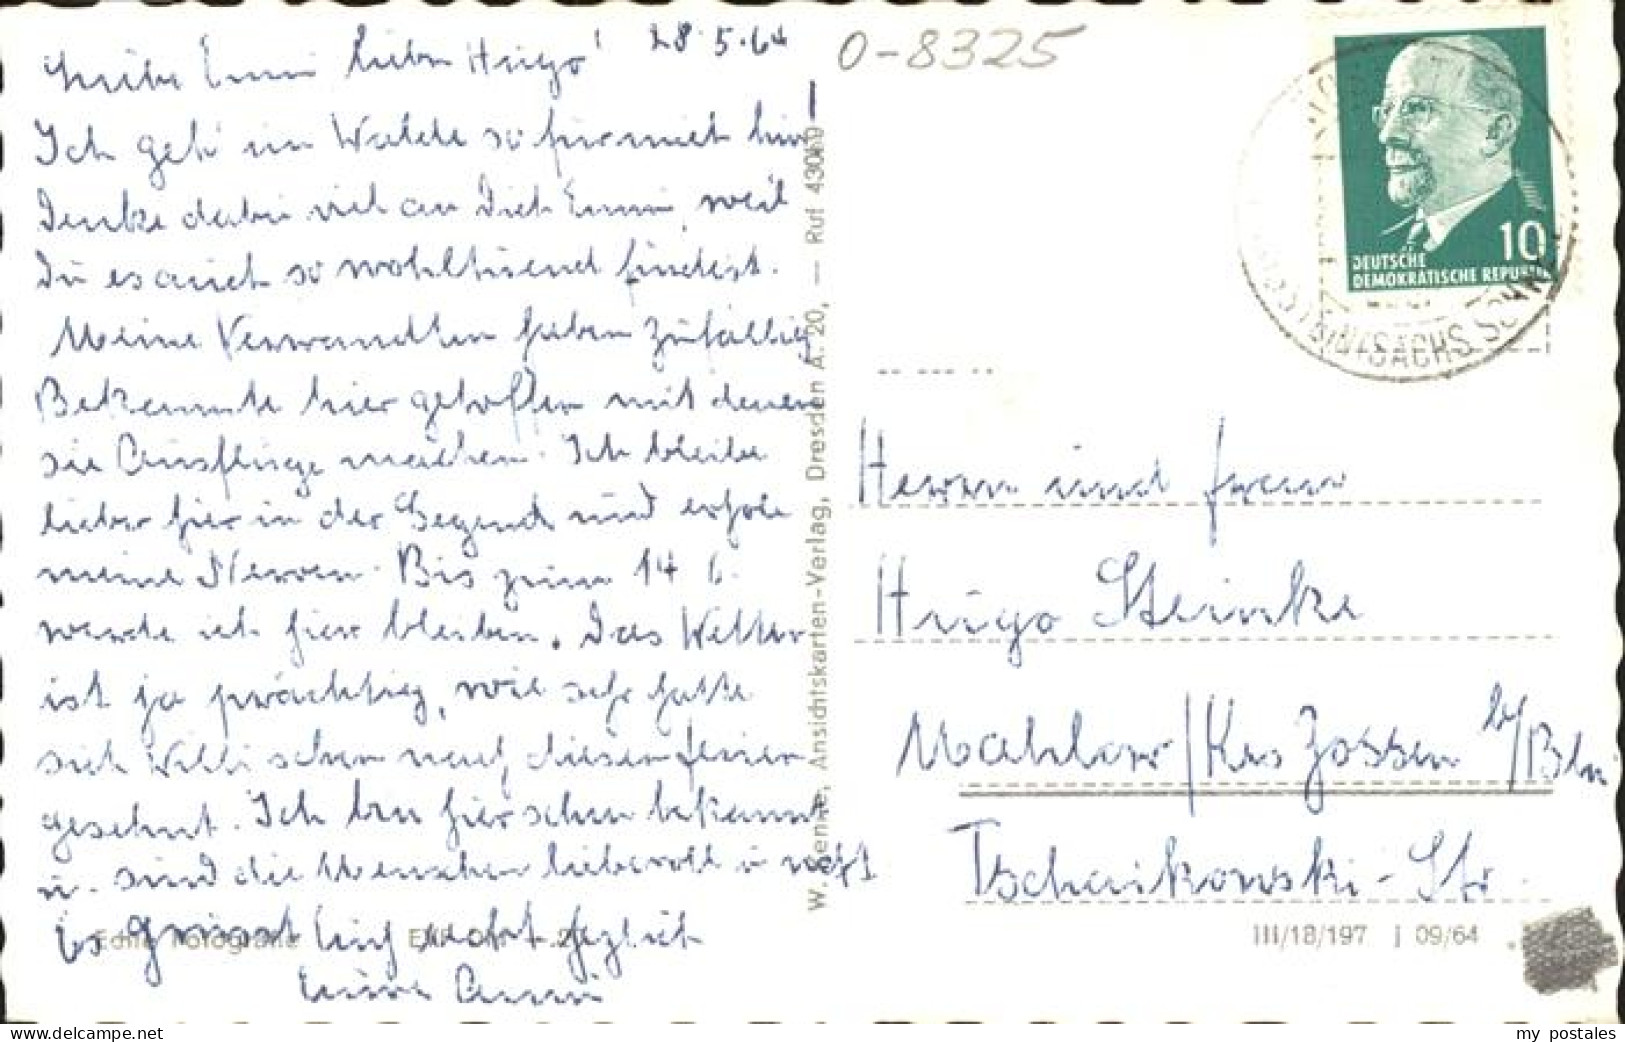 Liebe Emmi lieber Hugo! 28.5.64
Ich geh im Walde so für mich hin!
Denke dabei viel an Dich Emmi, weil
Du es auch so wohltuend findest.
Meine Verwandten haben zufällig
Bekannte hier getroffen mit denen
sie Ausflüge machen. Ich bleibe
lieber hier in der Gegend und erhole
meine Nerven. Bis zum 14 6.
werde ich hier bleiben. Das Wetter
ist ja prächtig, wie sehr hatte
sich Willi schon nach diesen
gesehnt. Ich bin hier schon bekannt
u. sind die Menschen liebevoll u nett
Es grüsst Euch recht herzlich
Eure Anni
Echte Fotografie
W. Ansichtskarten-Verlag, Dresden A. 20, — Ruf 43069
0-8325
10
DEUTSCHE
DEMOKRATISCHE REPUBLIK
SÄCHS. SCHWEIZ
Herrn und Frau
Hugo Steinke
Mahlow/Krs Zossen b/Bln
Tschaikowski-Str
III/18/197 j 09/64
www.delcampe.net
my_postales